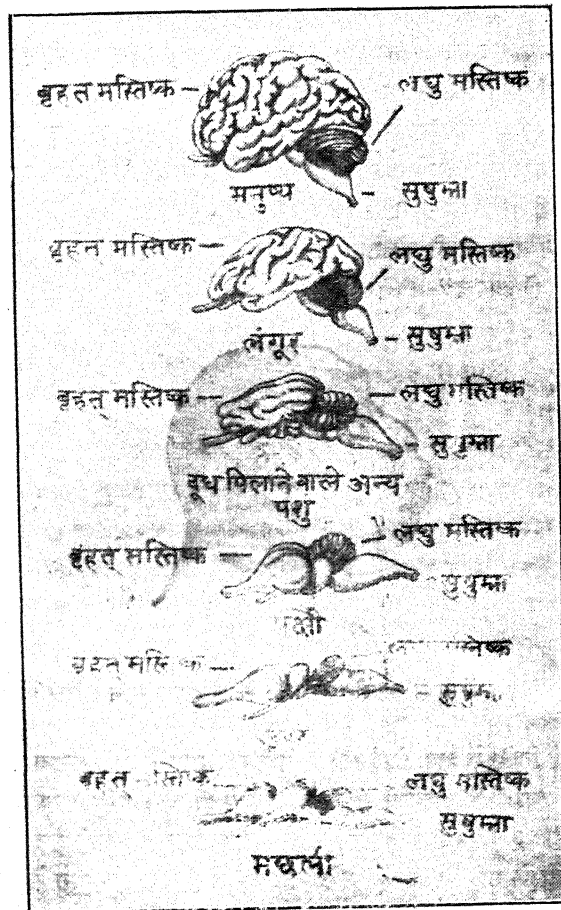 बृहत मस्तिष्क
लघु मस्तिष्क
मनुष्य
सुषुम्ना
बृहत् मस्तिष्क
लघु मस्तिष्क
लंगूर
सुषुम्ना
बृहत् मस्तिष्क
लघु मस्तिष्क
सुषुम्ना
दूध पिलाने वाले अन्य
पशु
लघु मस्तिष्क
बृहत् मस्तिष्क
सुषुम्ना
मस्तिष्क
सुषुम्ना
लघु मस्तिष्क
सुषुम्ना
मछली